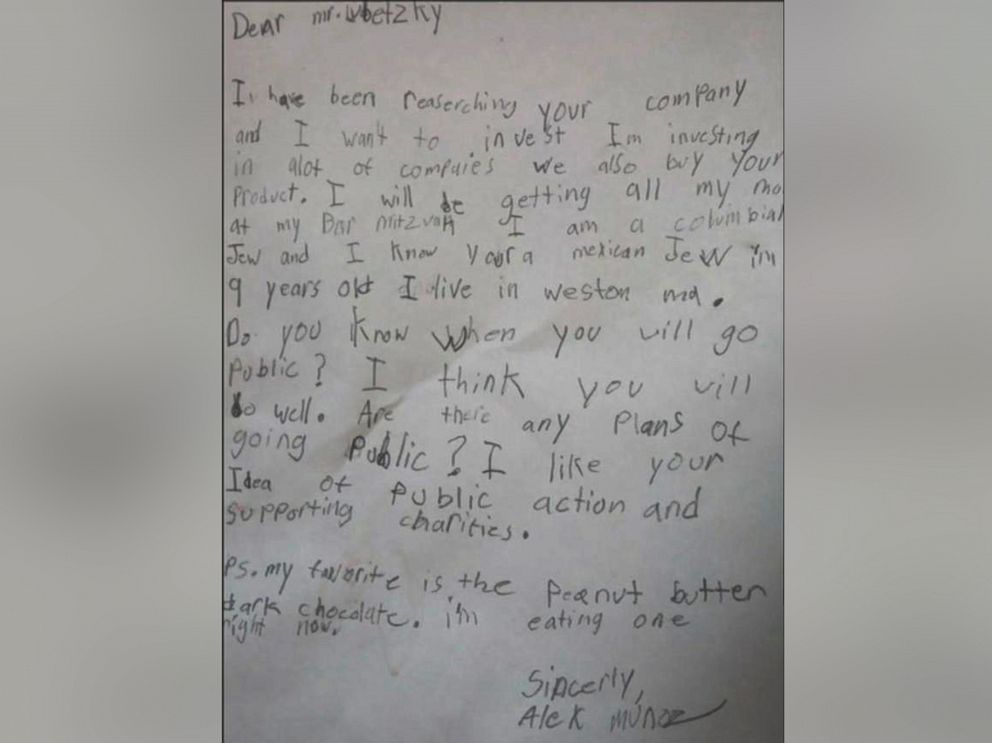 Dear mr. lubetzky
I have been reaserching your company
and I want to invest Im investing
in alot of compaies we also buy your
Product. I will be getting all my mo
at my Bar mitzvah I am a columbial
Jew and I know your a mexican Jew i'm
9 years old I live in weston ma.
Do you know when you will go
public? I think you will
do well. Are there any plans of
going public? I like your
Idea of public action and
supporting charities.
Ps. my favorite is the peanut butter
dark chocolate. i'm eating one
right now.
Sincerly,
Alek munoz